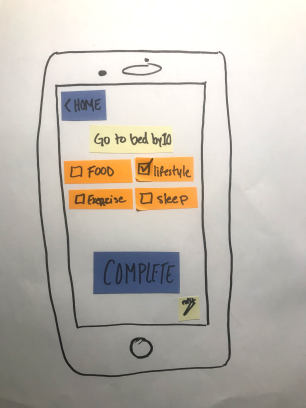 < HOME
Go to bed by 10
FOOD
lifestyle
Exercise
sleep
COMPLETE